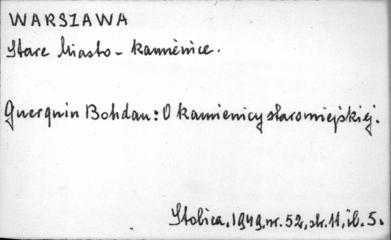 WARSZAWA
Stare Miasto - kamienice.
Guerquin Bohdan: O kamienicy staromiejskiej.
Stolica, 1949, nr. 52, str. 11, il. 5.